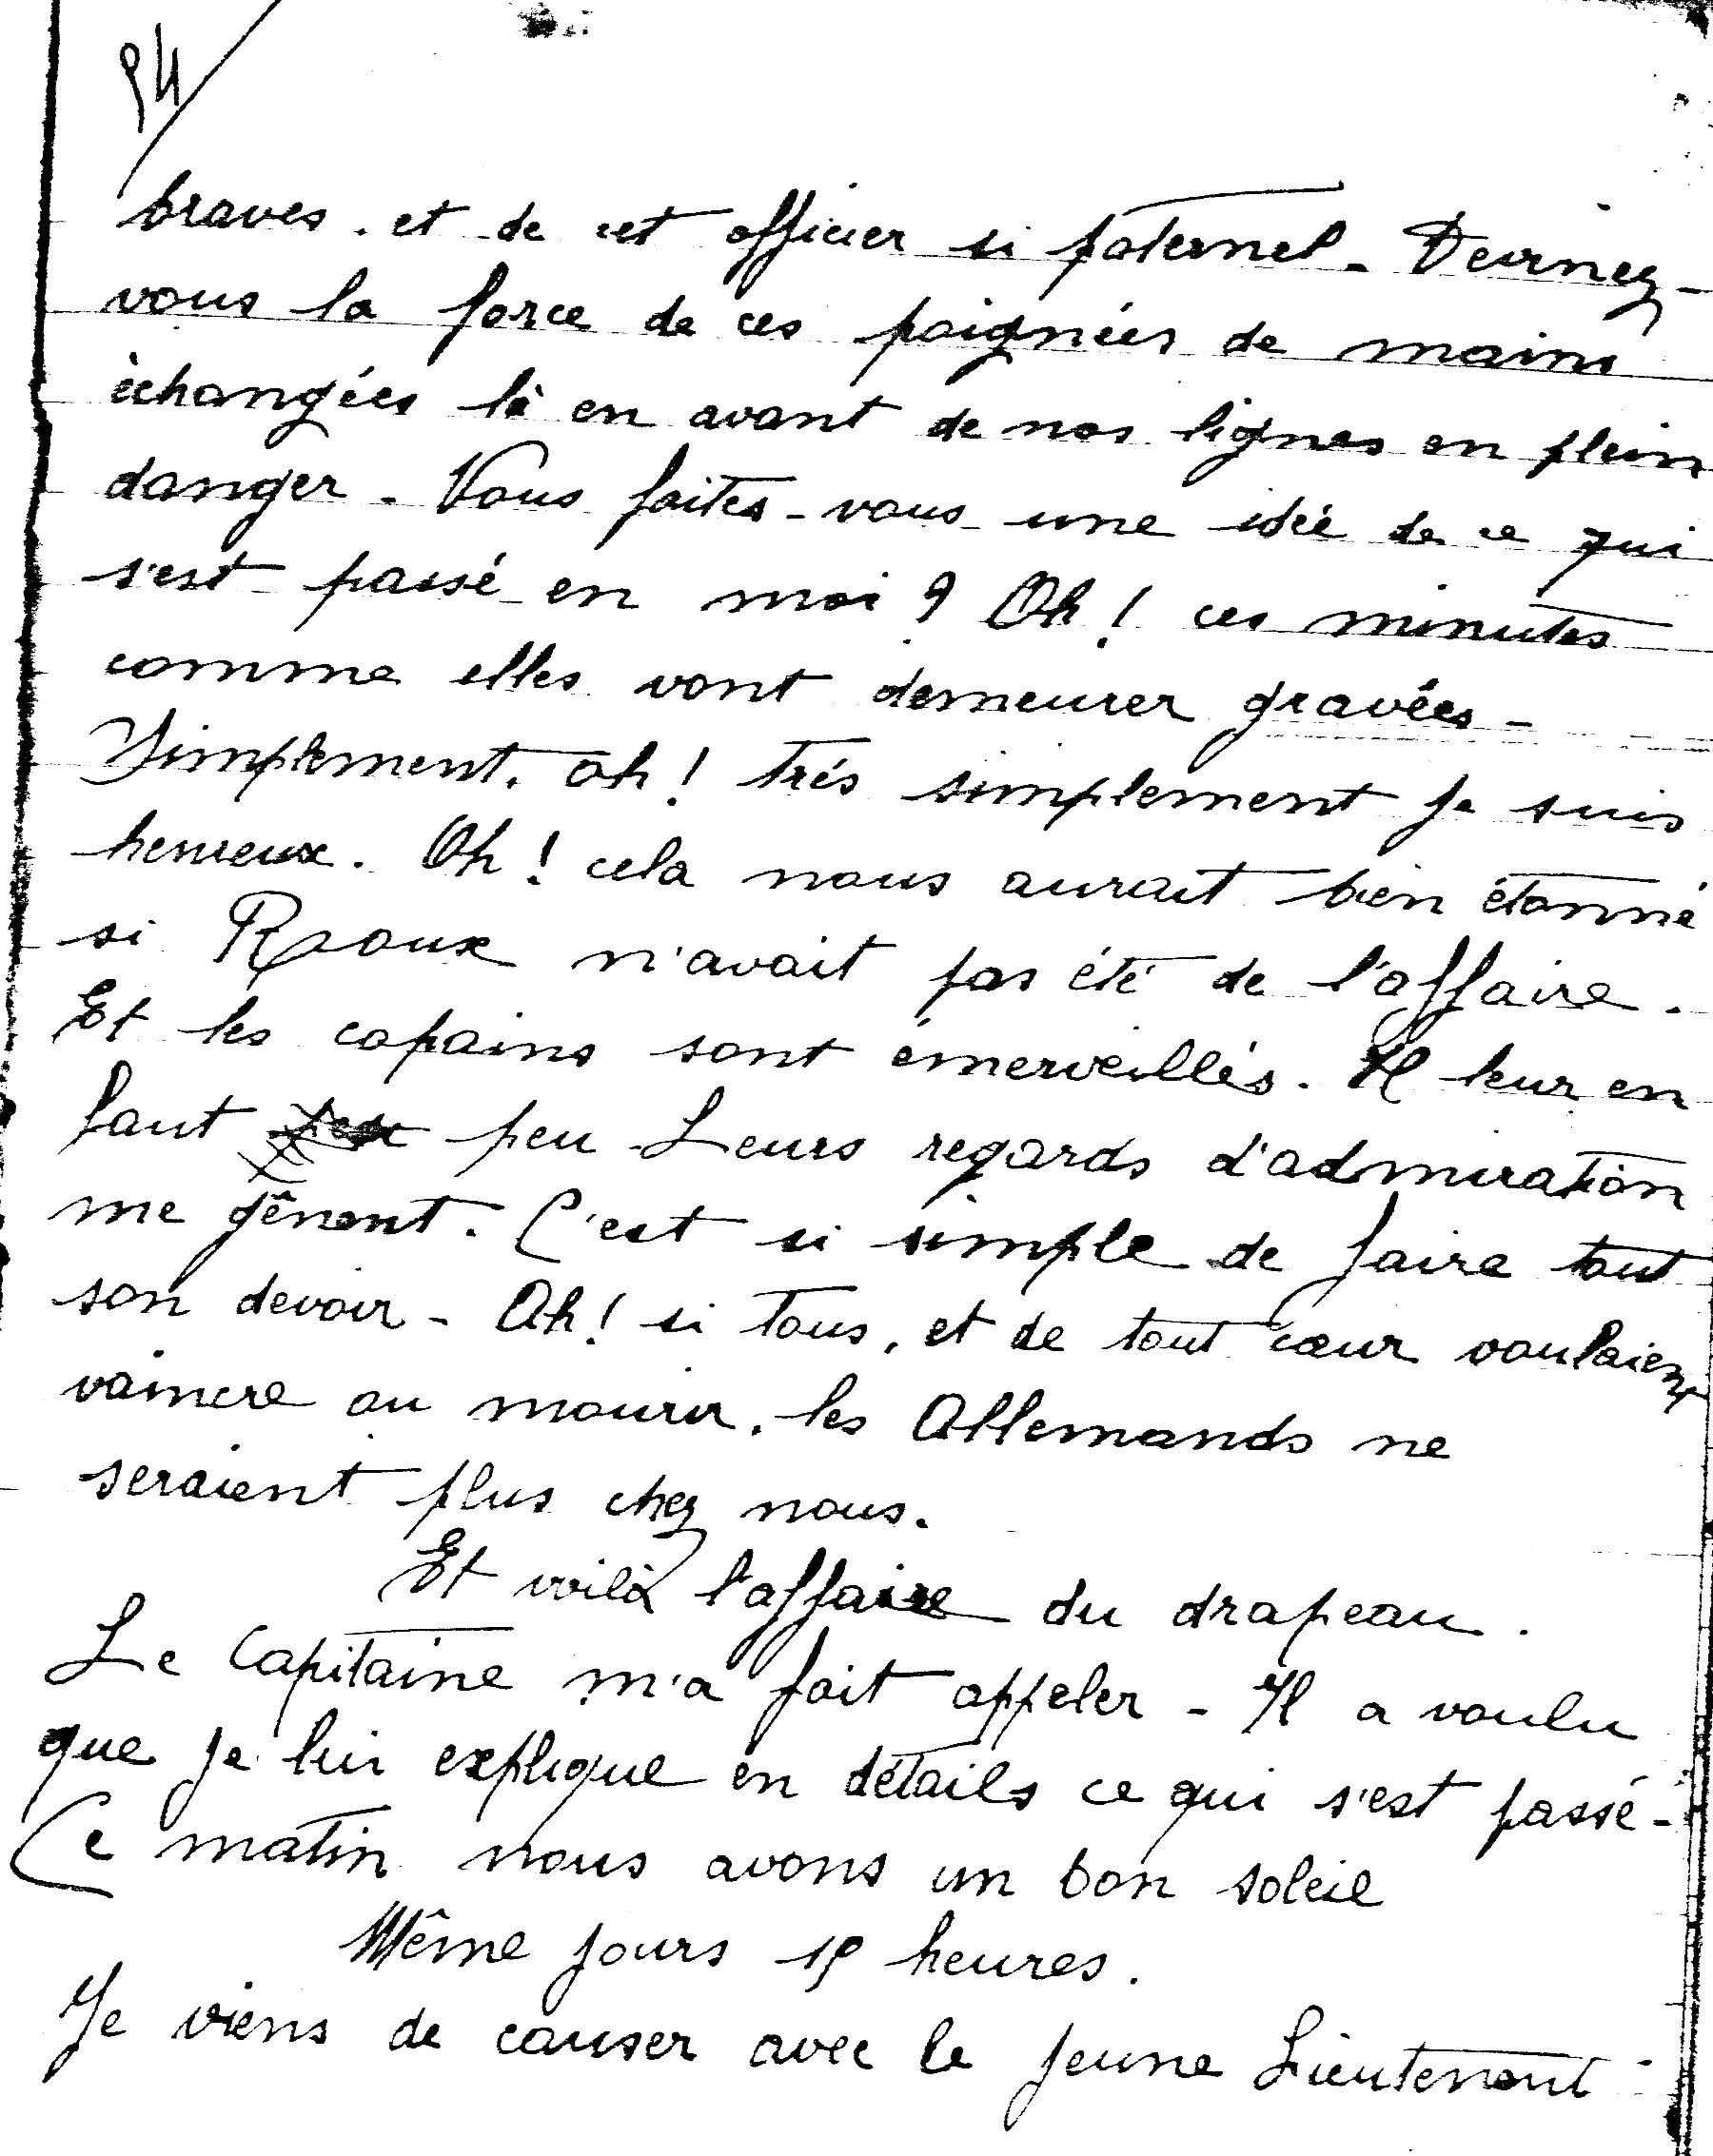 94
braves. et de cet officier si paternel - Devinez-
vous la force de ces poignées de mains
échangées là en avant de nos lignes en plein
danger - Vous faites-vous une idée de ce qui
s'est passé en moi ? Oh ! ces minutes
comme elles vont demeurer gravées -
Simplement, oh ! très simplement je suis
heureux. Oh ! cela nous aurait bien étonné
si Roux n'avait pas été de l'affaire.
Et les copains sont émerveillés. Il leur en
faut peu Leurs regards d'admiration
me gênent. C'est si simple de faire tout
son devoir - Ah ! si tous, et de tout cœur voulaient
vaincre ou mourir, les Allemands ne
seraient plus chez nous.
Et voilà l'affaire du drapeau.
Le Capitaine m'a fait appeler - Il a voulu
que je lui explique en détails ce qui s'est passé -
Ce matin nous avons un bon soleil
Même jours 19 heures.
Je viens de causer avec le jeune Lieutenant